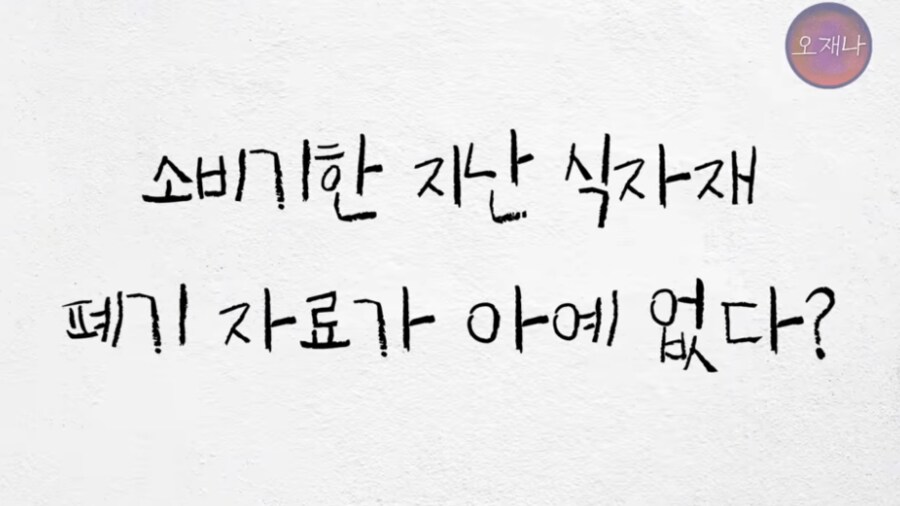 오재나
소비기한 지난 식자재
폐기 자료가 아예 없다?